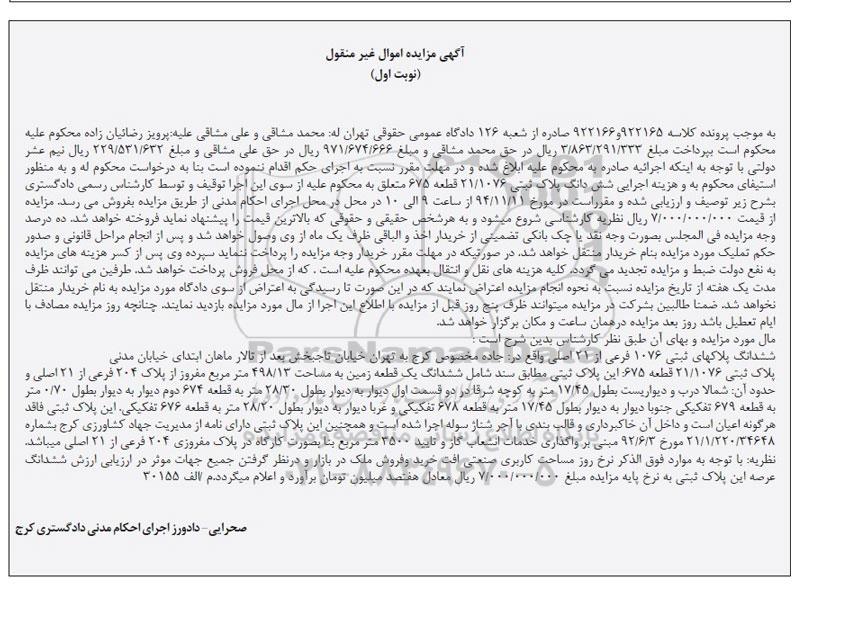 آگهی مزایده اموال غیر منقول
(نوبت اول)
به موجب پرونده کلاسه ۹۲۲۱۶۵و۹۲۲۱۶۶ صادره از شعبه ۱۲۶ دادگاه عمومی حقوقی تهران له: محمد مشاقی و علی مشاقی علیه:پرویز رضائیان زاده محکوم علیه
محکوم است بپرداخت مبلغ ۳/۸۶۳/۲۹۱/۳۳۳ ریال در حق محمد مشاقی و مبلغ ۹۷۱/۶۷۴/۶۶۶ ریال در حق علی مشاقی و مبلغ ۲۲۹/۵۳۱/۶۳۲ ریال نیم عشر
دولتی با توجه به اینکه اجرائیه صادره به محکوم علیه ابلاغ شده و در مهلت مقرر نسبت به اجرای حکم اقدام ننموده است بنا به درخواست محکوم له و به منظور
استیفای محکوم به و هزینه اجرایی شش دانگ پلاک ثبتی ۲۱/۱۰۷۶ قطعه ۶۷۵ متعلق به محکوم علیه از سوی این اجرا توقیف و توسط کارشناس رسمی دادگستری
بشرح زیر توصیف و ارزیابی شده و مقرراست در مورخ ۹۴/۱۱/۱۱ از ساعت ۹ الی ۱۰ در محل در محل اجرای احکام مدنی از طریق مزایده بفروش می رسد. مزایده
از قیمت ۷/۰۰۰/۰۰۰/۰۰۰ ریال نظریه کارشناسی شروع میشود و به هرشخص حقیقی و حقوقی که بالاترین قیمت را پیشنهاد نماید فروخته خواهد شد. ده درصد
وجه مزایده فی المجلس بصورت وجه نقد یا چک بانکی تضمینی از خریدار اخذ و الباقی ظرف یک ماه از وی وصول خواهد شد و پس از انجام مراحل قانونی و صدور
حکم تملیک مورد مزایده بنام خریدار منتقل خواهد شد. در صورتیکه در مهلت مقرر خریدار وجه مزایده را پرداخت ننماید سپرده وی پس از کسر هزینه های مزایده
به نفع دولت ضبط و مزایده تجدید می گردد. کلیه هزینه های نقل و انتقال بعهده محکوم علیه است . که از محل فروش پرداخت خواهد شد. طرفین می توانند ظرف
مدت یک هفته از تاریخ مزایده نسبت به نحوه انجام مزایده اعتراض نمایند که در این صورت تا رسیدگی به اعتراض از سوی دادگاه مورد مزایده به نام خریدار منتقل
نخواهد شد. ضمنا طالبین بشرکت در مزایده میتوانند ظرف پنج روز قبل از مزایده با اطلاع این اجرا از مال مورد مزایده بازدید نمایند. چنانچه روز مزایده مصادف با
ایام تعطیل باشد روز بعد مزایده درهمان ساعت و مکان برگزار خواهد شد.
مال مورد مزایده و بهای آن طبق نظر کارشناس بدین شرح است :
ششدانگ پلاکهای ثبتی ۱۰۷۶ فرعی از ۲۱ اصلی واقع در: جاده مخصوص کرج به تهران خیابان تاجبخش بعد از تالار ماهان ابتدای خیابان مدنی
پلاک ثبتی ۲۱/۱۰۷۶ قطعه ۶۷۵: این پلاک ثبتی مطابق سند شامل ششدانگ یک قطعه زمین به مساحت ۴۹۸/۱۳ متر مربع مفروز از پلاک ۲۰۴ فرعی از ۲۱ اصلی و
حدود آن: شمالا درب و دیواریست بطول ۱۷/۴۵ متر به کوچه شرقا در دو قسمت اول دیوار به دیوار بطول ۲۸/۳۰ متر به قطعه ۶۷۴ دوم دیوار به دیوار بطول ۰/۷۰ متر
به قطعه ۶۷۹ تفکیکی جنوبا دیوار به دیوار بطول ۱۷/۴۵ متر به قطعه ۶۷۸ تفکیکی و غربا دیوار به دیوار بطول ۲۸/۲۰ متر به قطعه ۶۷۶ تفکیکی. این پلاک ثبتی فاقد
هرگونه اعیان است و داخل آن خاکبرداری و قالب بندی با آجر شناژ سوله اجرا شده است و همچنین این پلاک ثبتی دارای نامه از مدیریت جهاد کشاورزی کرج بشماره
۲۱/۱/۲۲۰/۳۴۶۴۸ مورخ ۹۲/۶/۳ مبنی بر واگذاری خدمات انشعاب گاز و تایید ۳۵۰۰ متر مربع بنا بصورت کارگاه در پلاک مفروزی ۲۰۴ فرعی از ۲۱ اصلی میباشد.
نظریه: با توجه به موارد فوق الذکر نرخ روز مساحت کاربری صنعتی افت خرید وفروش ملک در بازار و درنظر گرفتن جمیع جهات موثر در ارزیابی ارزش ششدانگ
عرصه این پلاک ثبتی به نرخ پایه مزایده مبلغ ۷/۰۰۰/۰۰۰/۰۰۰ ریال معادل هفتصد میلیون تومان برآورد و اعلام میگردد.م /الف ۳۰۱۵۵
صحرایی- دادورز اجرای احکام مدنی دادگستری کرج
ParsNamadData